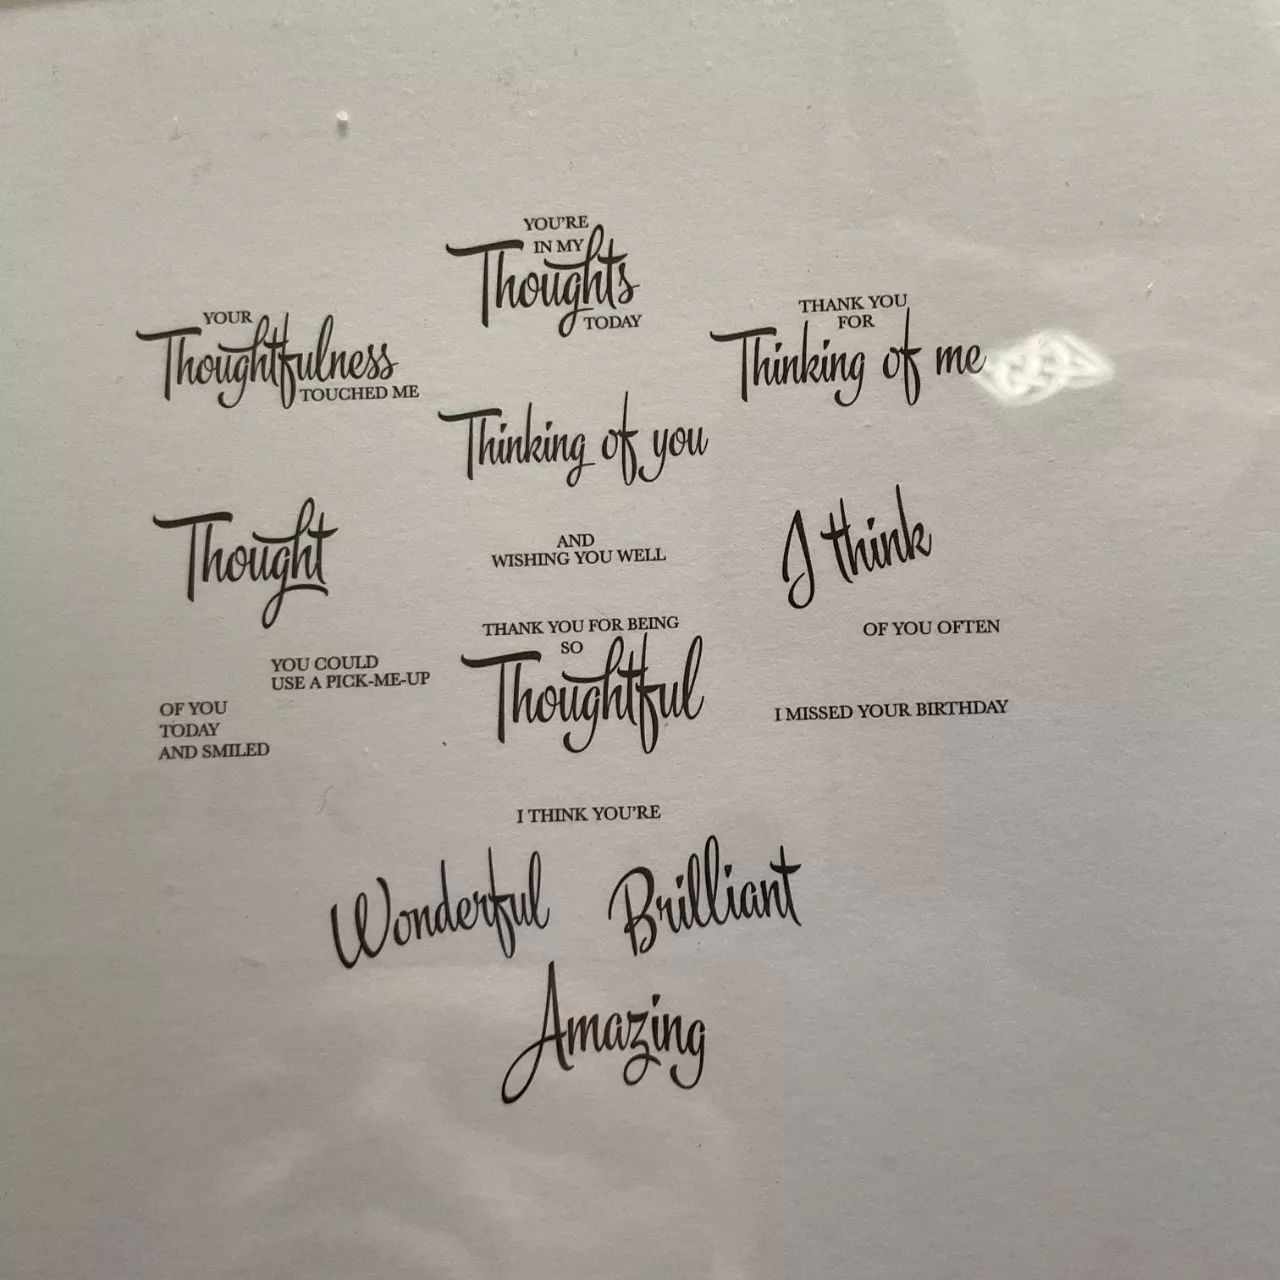 YOU'RE
IN MY
Thoughts
TODAY
YOUR
Thoughtfulness
TOUCHED ME
THANK YOU
FOR
Thinking of me
Thinking of you
Thought
AND
WISHING YOU WELL
I think
THANK YOU FOR BEING
SO
Thoughtful
OF YOU OFTEN
YOU COULD
USE A PICK-ME-UP
OF YOU
TODAY
AND SMILED
I MISSED YOUR BIRTHDAY
I THINK YOU'RE
Wonderful
Brilliant
Amazing